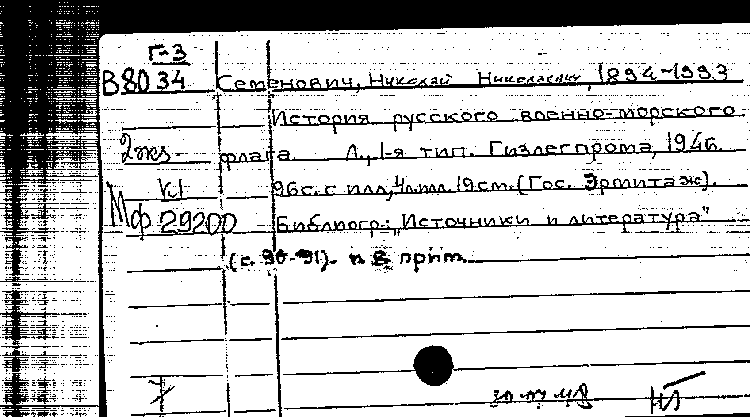 Г-3
В8034 Семенович, Николай Николаевич, 1894-1993
История русского военно-морского
2экз. флага Л., 1-я тип. Гизлегпрома, 1946.
96с. с илл., 4л.илл. 19см. (Гос. Эрмитаж).
Мф 29200 Библиогр.: "Источники и литература"
(с. 90-91). и в прим.